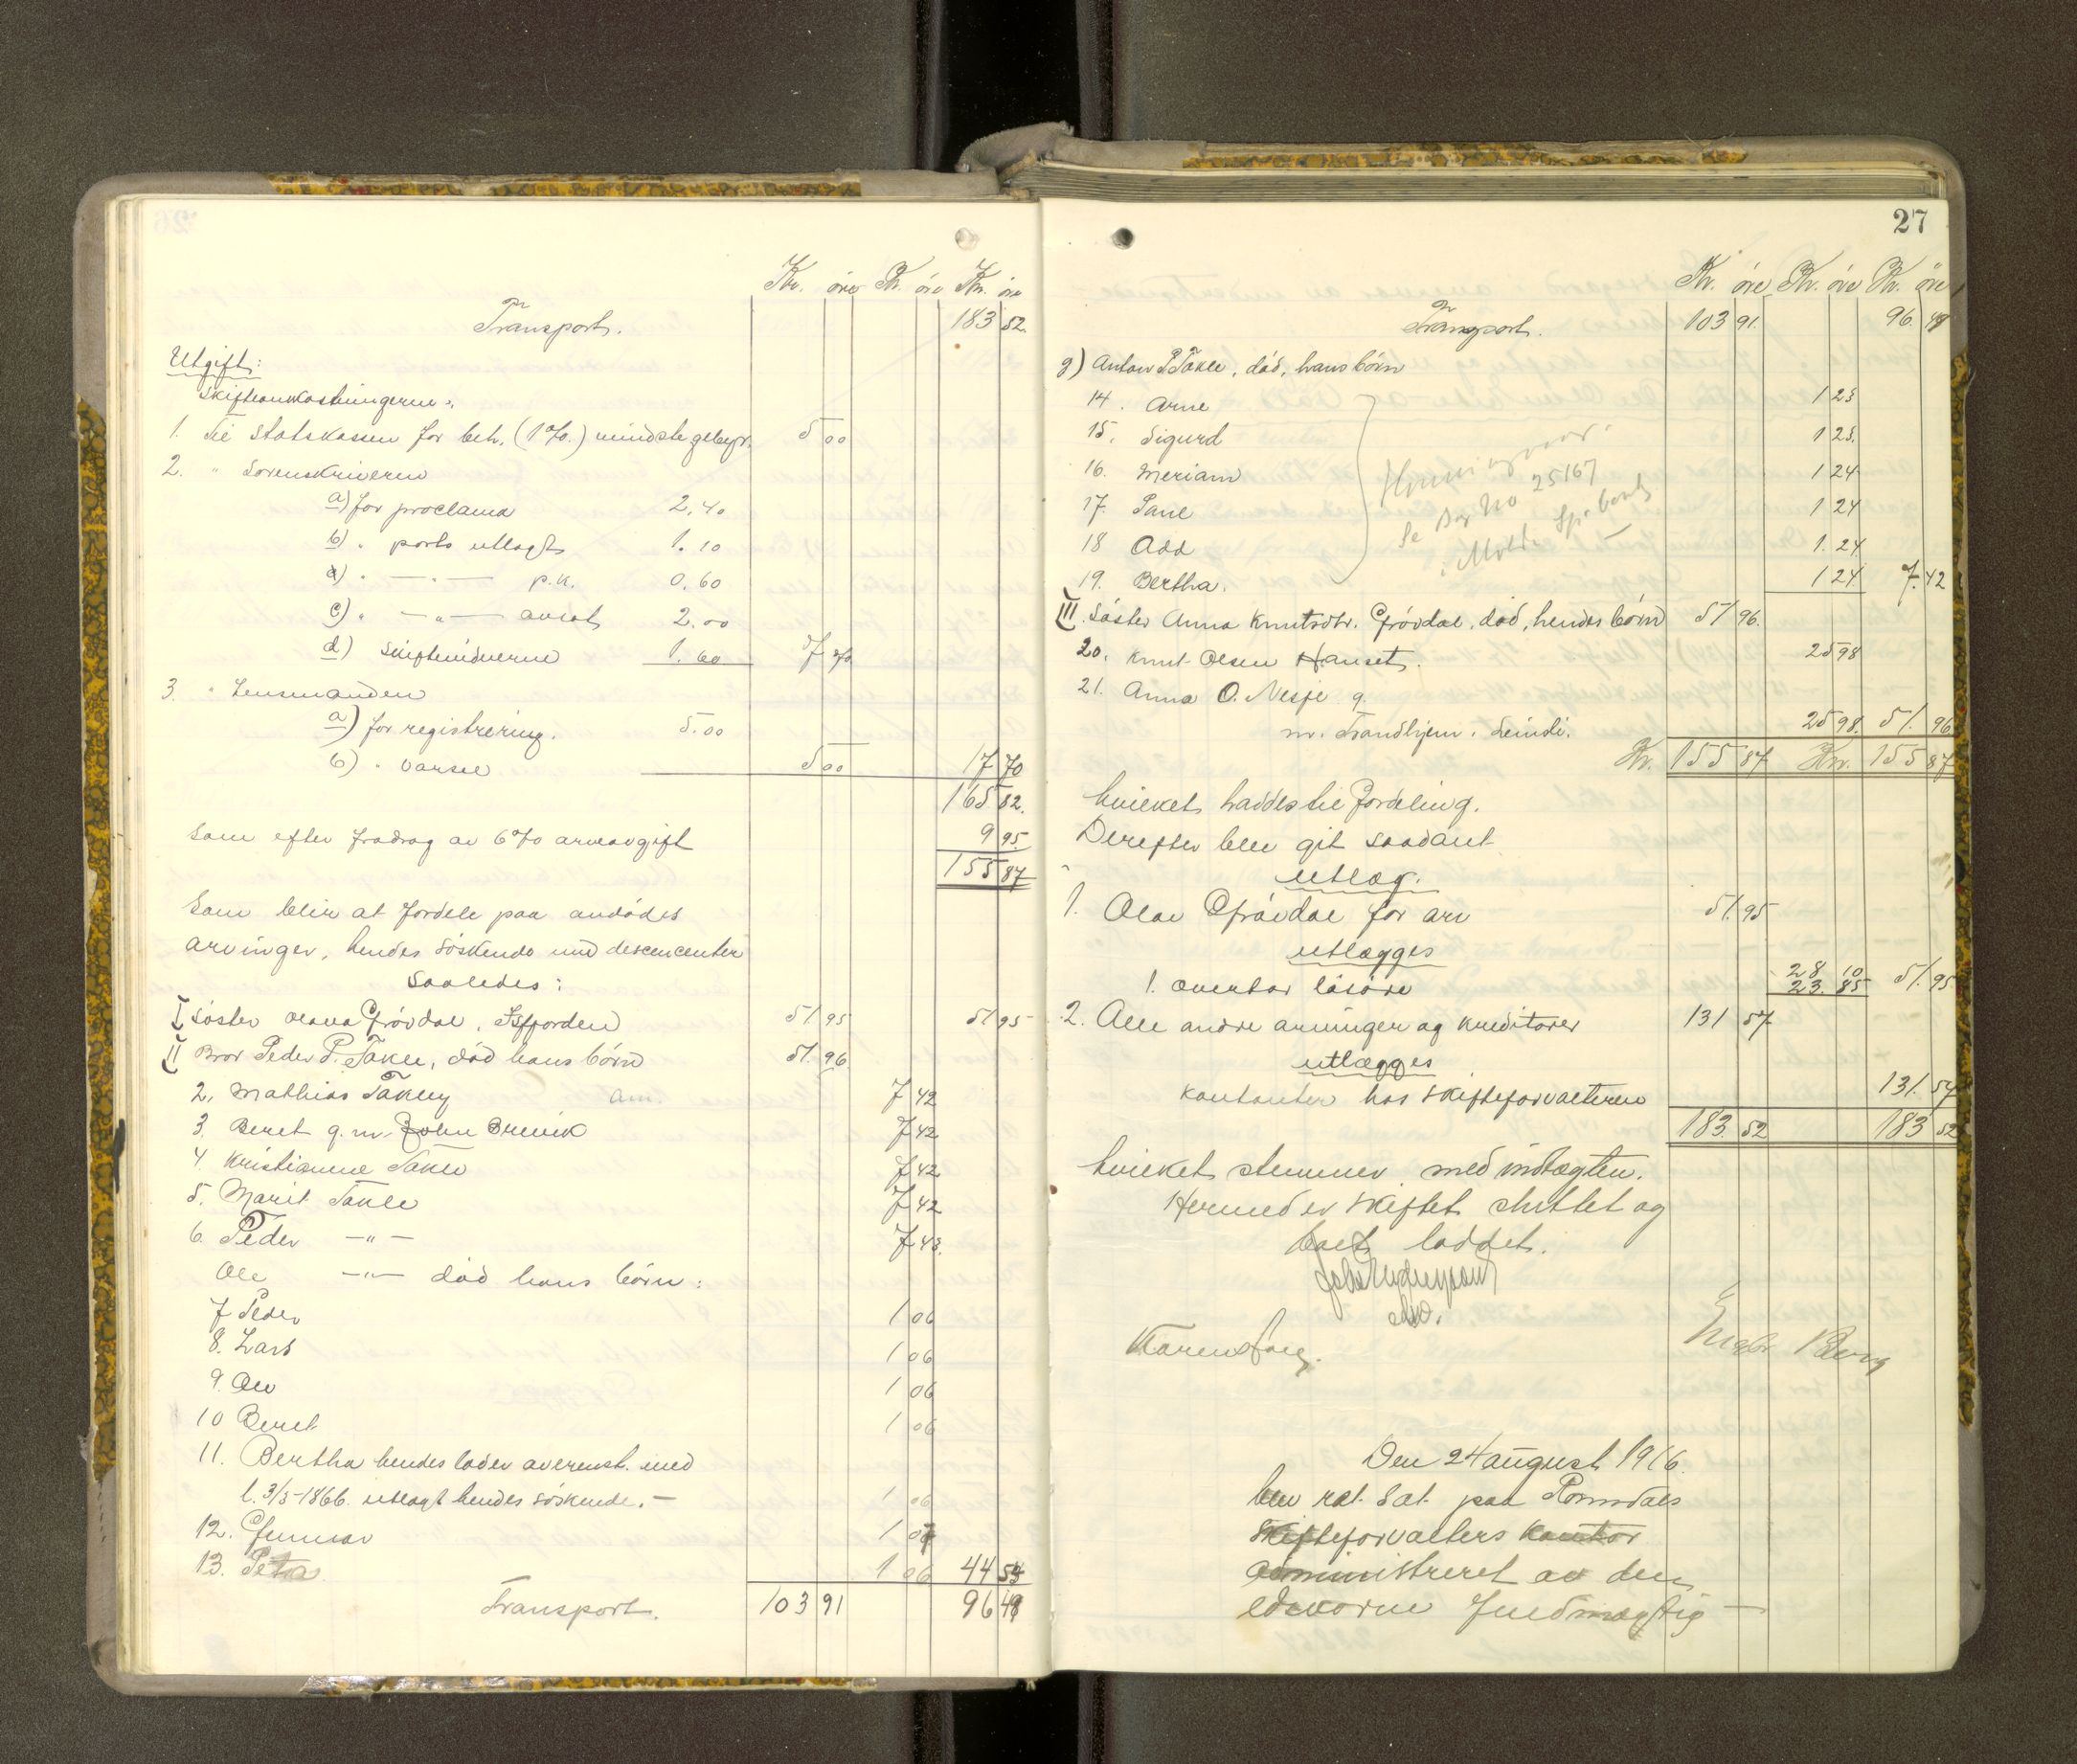 Kr. øre Kr. øre Kr. øre
Transport. 183 52.
Utgift:
Skifteomkostningerne:
1. Til Statskassen for beh. (1%) mindstegebyr. 5 00
2. " Sorenskriveren
a) for proclama 2.40
b) " porto utlagt 1.10
" —"— p.k. 0.60
c) " —"— avert. 2.00
d) Skiftevidnerne 1.60 7 70
3. " Lensmanden
a) for registrering. 5.00
b) " varsel 5 00 17 70
165 82.
Som efter fradrag av 6% arveavgift 9 95.
155 87
som blir at fordele paa avdødes
arvinger, hendes søskende med descencenter
saaledes:
I Søster Olava Grøvdal, Isfjorden 51 95 51 95
II Bror Peder P. Takle, død hans børn 51. 96
2. Mathias Takle am. 7 42
3. Beret g.m. John Breivik 7 42
4. Kristianne Takle 7 42
5. Marit Takle 7 42
6. Peder —"— 7 43.
Ole —"— død hans børn:
7 Peder 1 06
8. Lars 1 06
9. Ole 1 06
10 Beret 1 06
11. Bertha hendes lader overenst. med
l. 3/5-1866. utlagt hendes søskende.— 1 06
12. Gunnar 1 07
13. Petra 1 06 44 54
Transport. 103 91 96 49
27
Kr. øre Kr. øre Kr. øre
Transport. 103 91. 96. 49
g) Anton P. Takle, død, hans børn
14. Arne 1 25
15. Sigurd 1 25.
16. Meriam 1 24
17. Paul 1 24
18 Odd 1. 24
19. Bertha. 1 24 7. 42
Se No 25167
III. Søster Anna Knutsdtr. Grøvdal, død, hendes børn 51 96.
20. Knut Olsen Hanset. 25 98
21. Anna O. Nesje g.
m. Trondhjem. 25 98. 51. 96
Kr. 155 87 Kr. 155 87
hvilket haddes til fordeling.
Derefter blev git saadant
utlæg.
1. Olav Grøvdal for arv 51. 95
utlægges
1. overtar løsøre 28. 10 23. 85 51. 95
2. Alle andre arvinger og kreditorer 131 57
utlægges
kontanter hos skifteforvalteren 131. 57
183. 52 183 52
hvilket stemmer med indtægten.
Hermed er skiftet sluttet og
boet loddet.
Berg
Den 24 august 1916.
blev ret sat paa Romsdals
Skifteforvalters kontor
administreret av den
edsvorne fuldmægtig —